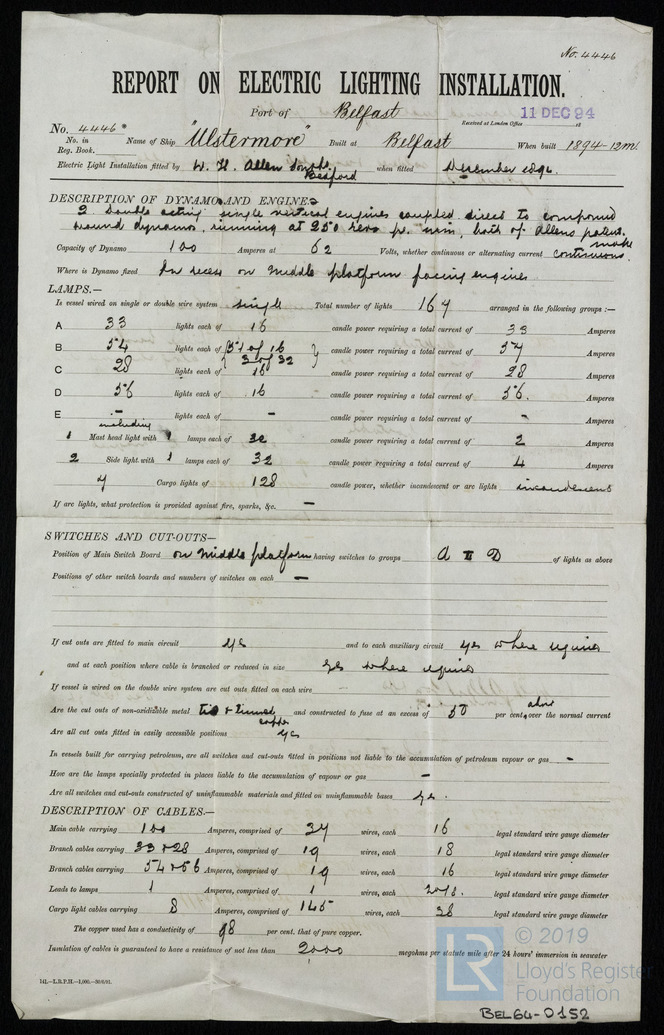 No. 4446
REPORT ON ELECTRIC LIGHTING INSTALLATION.
Port of Belfast Received at London Office 11 DEC 94 18
No. 4446 Name of Ship "Ulstermore" Built at Belfast When built 1894-12m
No. in Reg. Book.
Electric Light Installation fitted by W. H. Allen Sons & Co Bedford when fitted December 1894.
DESCRIPTION OF DYNAMO AND ENGINE
2 Double acting single vertical engines coupled direct to compound
wound dynamos, running at 250 revs pr. min, both of Allens patent make
Capacity of Dynamo 100 Amperes at 62 Volts, whether continuous or alternating current continuous.
Where is Dynamo fixed In recess on middle platform facing engines
LAMPS.—
Is vessel wired on single or double wire system single Total number of lights 164 arranged in the following groups :—
A 33 lights each of 16 candle power requiring a total current of 33 Amperes
B 54 lights each of {51 of 16 3 of 32} candle power requiring a total current of 57 Amperes
C 28 lights each of 16 candle power requiring a total current of 28 Amperes
D 56 lights each of 16 candle power requiring a total current of 56. Amperes
E - lights each of - candle power requiring a total current of - Amperes
including
1 Mast head light with 1 lamps each of 32 candle power requiring a total current of 2 Amperes
2 Side light with 1 lamps each of 32 candle power requiring a total current of 4 Amperes
7 Cargo lights of 128 candle power, whether incandescent or arc lights incandescent
If arc lights, what protection is provided against fire, sparks, &c. —
SWITCHES AND CUT-OUTS—
Position of Main Switch Board on middle platform having switches to groups A to D of lights as above
Positions of other switch boards and numbers of switches on each —
If cut outs are fitted to main circuit yes and to each auxiliary circuit yes where required
and at each position where cable is branched or reduced in size yes where required
If vessel is wired on the double wire system are cut outs fitted on each wire -
Are the cut outs of non-oxidizable metal tin & tinned copper and constructed to fuse at an excess of 50 per cent. above over the normal current
Are all cut outs fitted in easily accessible positions yes
In vessels built for carrying petroleum, are all switches and cut-outs fitted in positions not liable to the accumulation of petroleum vapour or gas -
How are the lamps specially protected in places liable to the accumulation of vapour or gas —
Are all switches and cut-outs constructed of uninflammable materials and fitted on uninflammable bases yes.
DESCRIPTION OF CABLES.—
Main cable carrying 100 Amperes, comprised of 37 wires, each 16 legal standard wire gauge diameter
Branch cables carrying 33 & 28 Amperes, comprised of 19 wires, each 18 legal standard wire gauge diameter
Branch cables carrying 54 & 56 Amperes, comprised of 19 wires, each 16 legal standard wire gauge diameter
Leads to lamps 1 Amperes, comprised of 1 wires, each legal standard wire gauge diameter
Cargo light cables carrying 8 Amperes, comprised of 145 wires, each 38 legal standard wire gauge diameter
The copper used has a conductivity of 98 per cent. that of pure copper.
Insulation of cables is guaranteed to have a resistance of not less than 2000 megohms per statute mile after 24 hours' immersion in seawater
LR © 2019
Lloyd's Register
Foundation
BEL64-0152